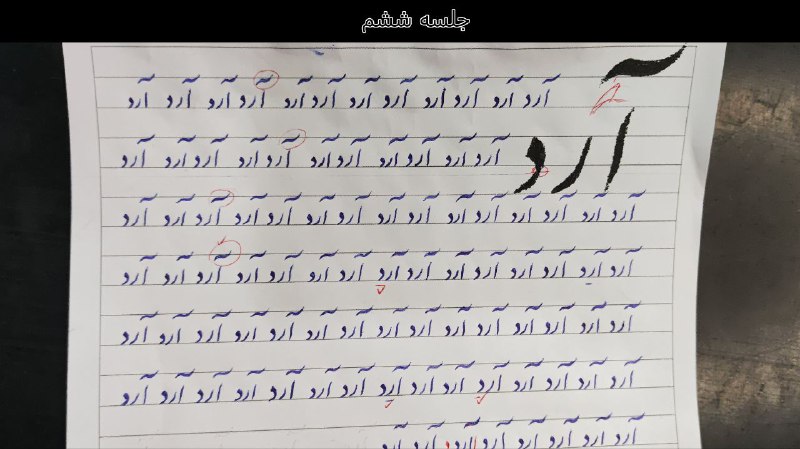 جلسه ششم
آرد
آرد آرد آرد آرد آرد آرد آرد آرد آرد آرد آرد آرد
آرد آرد آرد آرد آرد آرد آرد آرد آرد آرد آرد
آرد آرد آرد آرد آرد آرد آرد آرد آرد آرد آرد آرد آرد آرد آرد
آرد آرد آرد آرد آرد آرد آرد آرد آرد آرد آرد آرد آرد آرد آرد
آرد آرد آرد آرد آرد آرد آرد آرد آرد آرد آرد آرد آرد آرد آرد
آرد آرد آرد آرد آرد آرد آرد آرد آرد آرد آرد آرد آرد آرد آرد
آرد آرد آرد آرد آرد آرد آرد آرد